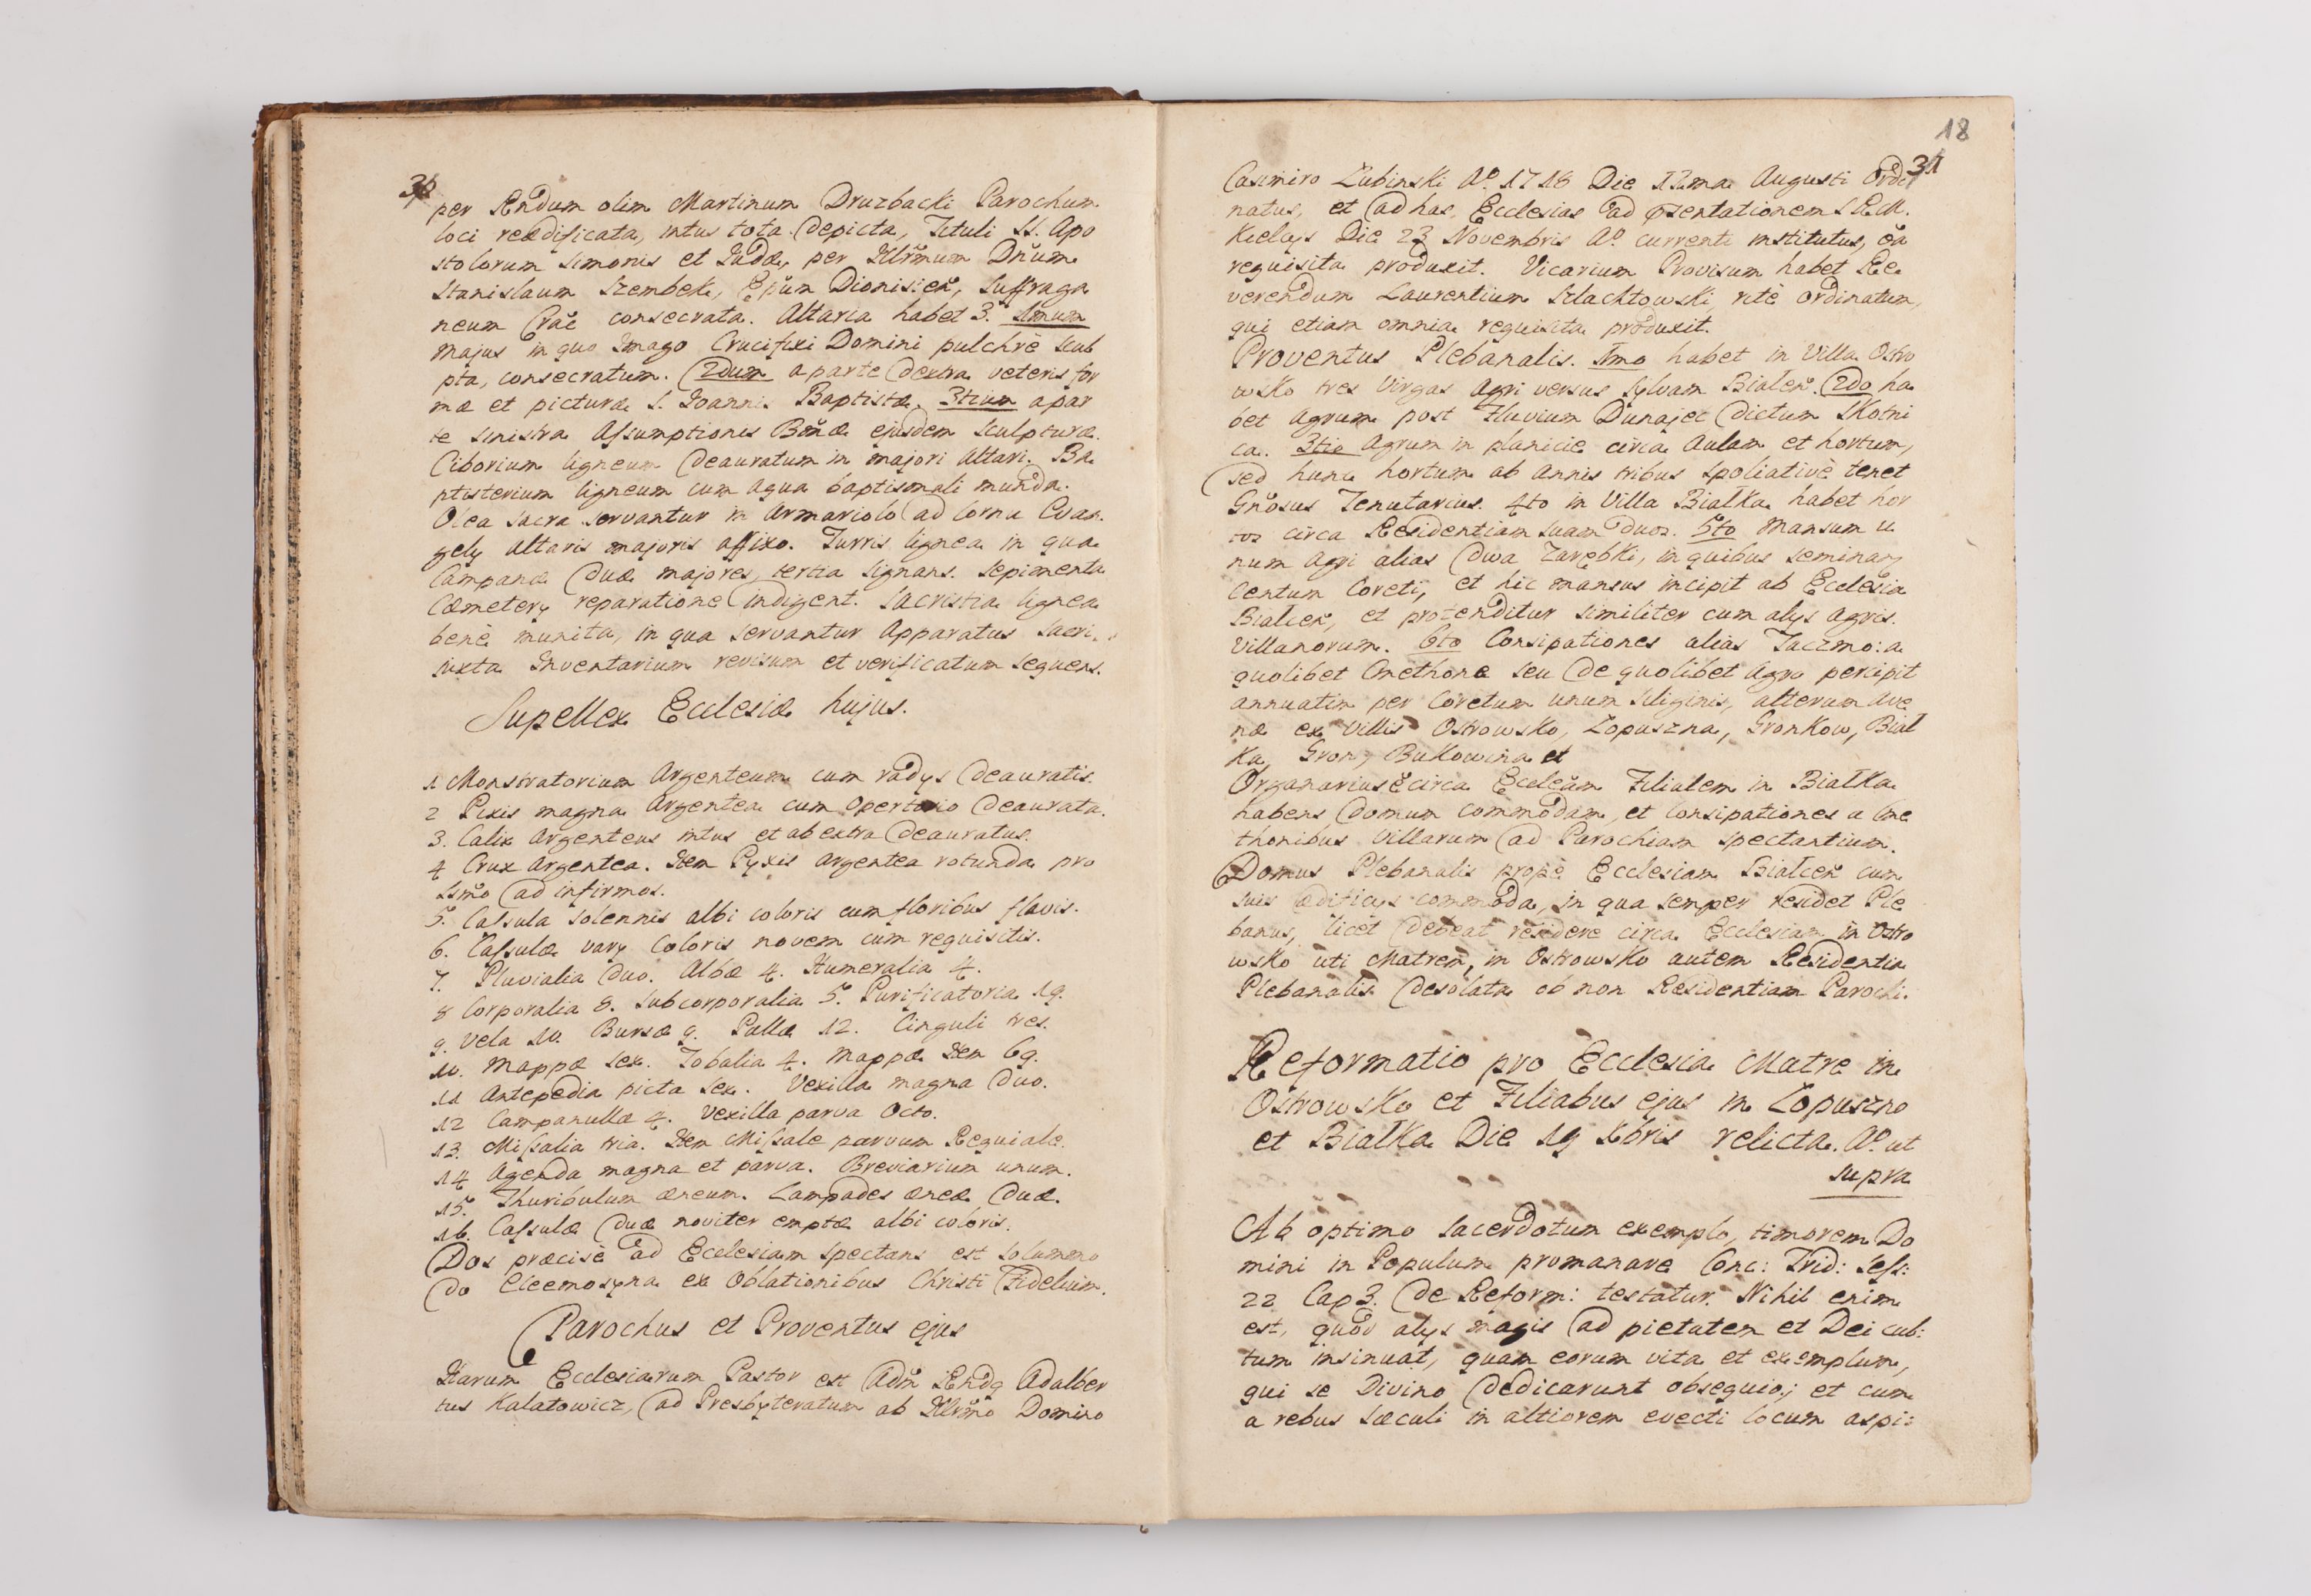 per Rndum olim Martinum Druzbacki Parochum
loci reædificata, intus tota depicta, Tituli SS. Apo
stolorum Simonis et Judæ, per Illrmum Dnum
Stanislaum Szembek, Epum Dionisien, Suffraga
neum Crac consecrata. Altaria habet 3. 1mum
majus in quo Imago Crucifixi Domini pulchrè scul
pta, consecratum. 2dum a parte dextra veteris for
mæ et picturæ S. Joannis Baptistæ. 3tium a par
te sinistra Assumptionis Bmæ ejusdem sculpturæ.
Ciborium ligneum deauratum in majori altari. Ba
ptisterium ligneum cum aqua baptismali munda.
Olea sacra servantur in Armariolo ad Cornu Evan
gely altaris majoris affixo. Turris lignea in qua
Campanæ duæ majores, tertia signans. Sepimenta
Cæmetery reparatione indigent. Sacristia lignea
benè munita, in qua servantur Apparatus Sacri
juxta Inventarium revisum et verificatum sequens.
Supellex Ecclesiæ hujus.
1 Monstratorium Argenteum cum radys deauratis.
2 Pixis magna Argentea cum opertorio deaurata.
3. Calix Argenteus intus et ab extra deauratus.
4 Crux Argentea. Item Pyxis argentea rotunda pro
Ssmo ad infirmos.
5. Casula solennis albi coloris cum floribus flavis.
6. Casulæ vary Coloris novem cum requisitis.
7. Pluvialia duo. Albæ 4. Humeralia 4.
8 Corporalia 8. Subcorporalia 5. Purificatoria 19.
9. Vela 10. Bursæ 9. Pallæ 12. Cinguli tres.
10. Mappæ sex. Tobalia 4. Mappæ Item 69.
11 Antepedia picta sex. Vexilla magna duo.
12 Campanullæ 4. Vexilla parva Octo.
13. Missalia tria. Item Missale parvum Requiale.
14 Agenda magna et parva. Breviarium unum.
15. Thuribulum æneum. Lampades æneæ duæ.
16. Casulæ duæ noviter emptæ albi coloris.
Dos præcisè ad Ecclesiam spectans est solummo
do Eleemosyna ex Oblationibus Christi Fidelium.
Parochus et Proventus ejus
Harum Ecclesiarum Pastor est Adm Rnds Adalber
tus Kalatowicz, ad Presbyteratum ab Illrmo Domino
18
31
Casimiro Łubinski Aº. 1716 Die 12ma Augusti Ordi
natus, et ad has Ecclesias ad psentationem S R M.
Kielcys Die 23 Novembris Aº. currenti institutus, ea
requisita produxit. Vicarium Provisum habet Re
verendum Laurentium Szlachtowski, ritè ordinatum,
qui etiam omnia requisita produxit.
Proventus Plebanalis. 1mo habet in Villa Ostro
wsko tres Virgas Agri versus sylvam Bialen. 2do ha
bet Agrum post Fluvium Dunajec dictum Skotni
ca. 3tio Agrum in planicie circa Aulam et hortum,
sed hunc hortum ab annis tribus spoliativè tenet
Gnosus Tenutarius. 4to in Villa Białka habet hor
tos circa Residentiam suam duos. 5to Mansum u
num Agri alias dwa Zarębki, in quibus seminan
Centum Coreti, et hic mansus incipit ab Ecclesia
Bialcen, et protenditur similiter cum alys Agris
Villanorum. 6to Consipationes alias Taczmo: a
quolibet Cmethone seu de quolibet Agro percipit
annuatim per Coretum unum siliginis, alterum ave
næ ex Villis Ostrowsko, Łopuszna, Gronkow, Biał
ka, Gron, Bukowina et
Organarius e circa Eccleam Filialem in Białka
habens domum commodam, et Consipationes a Cme
thonibus Villarum ad Parochiam spectantium.
Domus Plebanalis propè Ecclesiam Bialcen cum
suis ædificys commoda, in qua semper residet Ple
banus, licet debeat residere circa Ecclesiam in Ostro
wsko uti Matrem, in Ostrowsko autem Residentia
Plebanalis desolata ob non Residentiam Parochi.
Reformatio pro Ecclesia Matre in
Ostrowsko et Filiabus ejus in Łopuszno
et Białka Die 19 Xbris relicta. Aº. ut
supra
Ab optimo Sacerdotum exemplo, timorem Do
mini in Populum promanare Conc: Trid: Sess:
22 Cap 3. de Reform: testatur. Nihil enim
est, quod alys magis ad pietatem et Dei cul:
tum insinuat, quam eorum vita et exemplum,
qui se Divino dedicarunt obsequio; et cum
a rebus sæculi in altiorem evecti locum aspi: